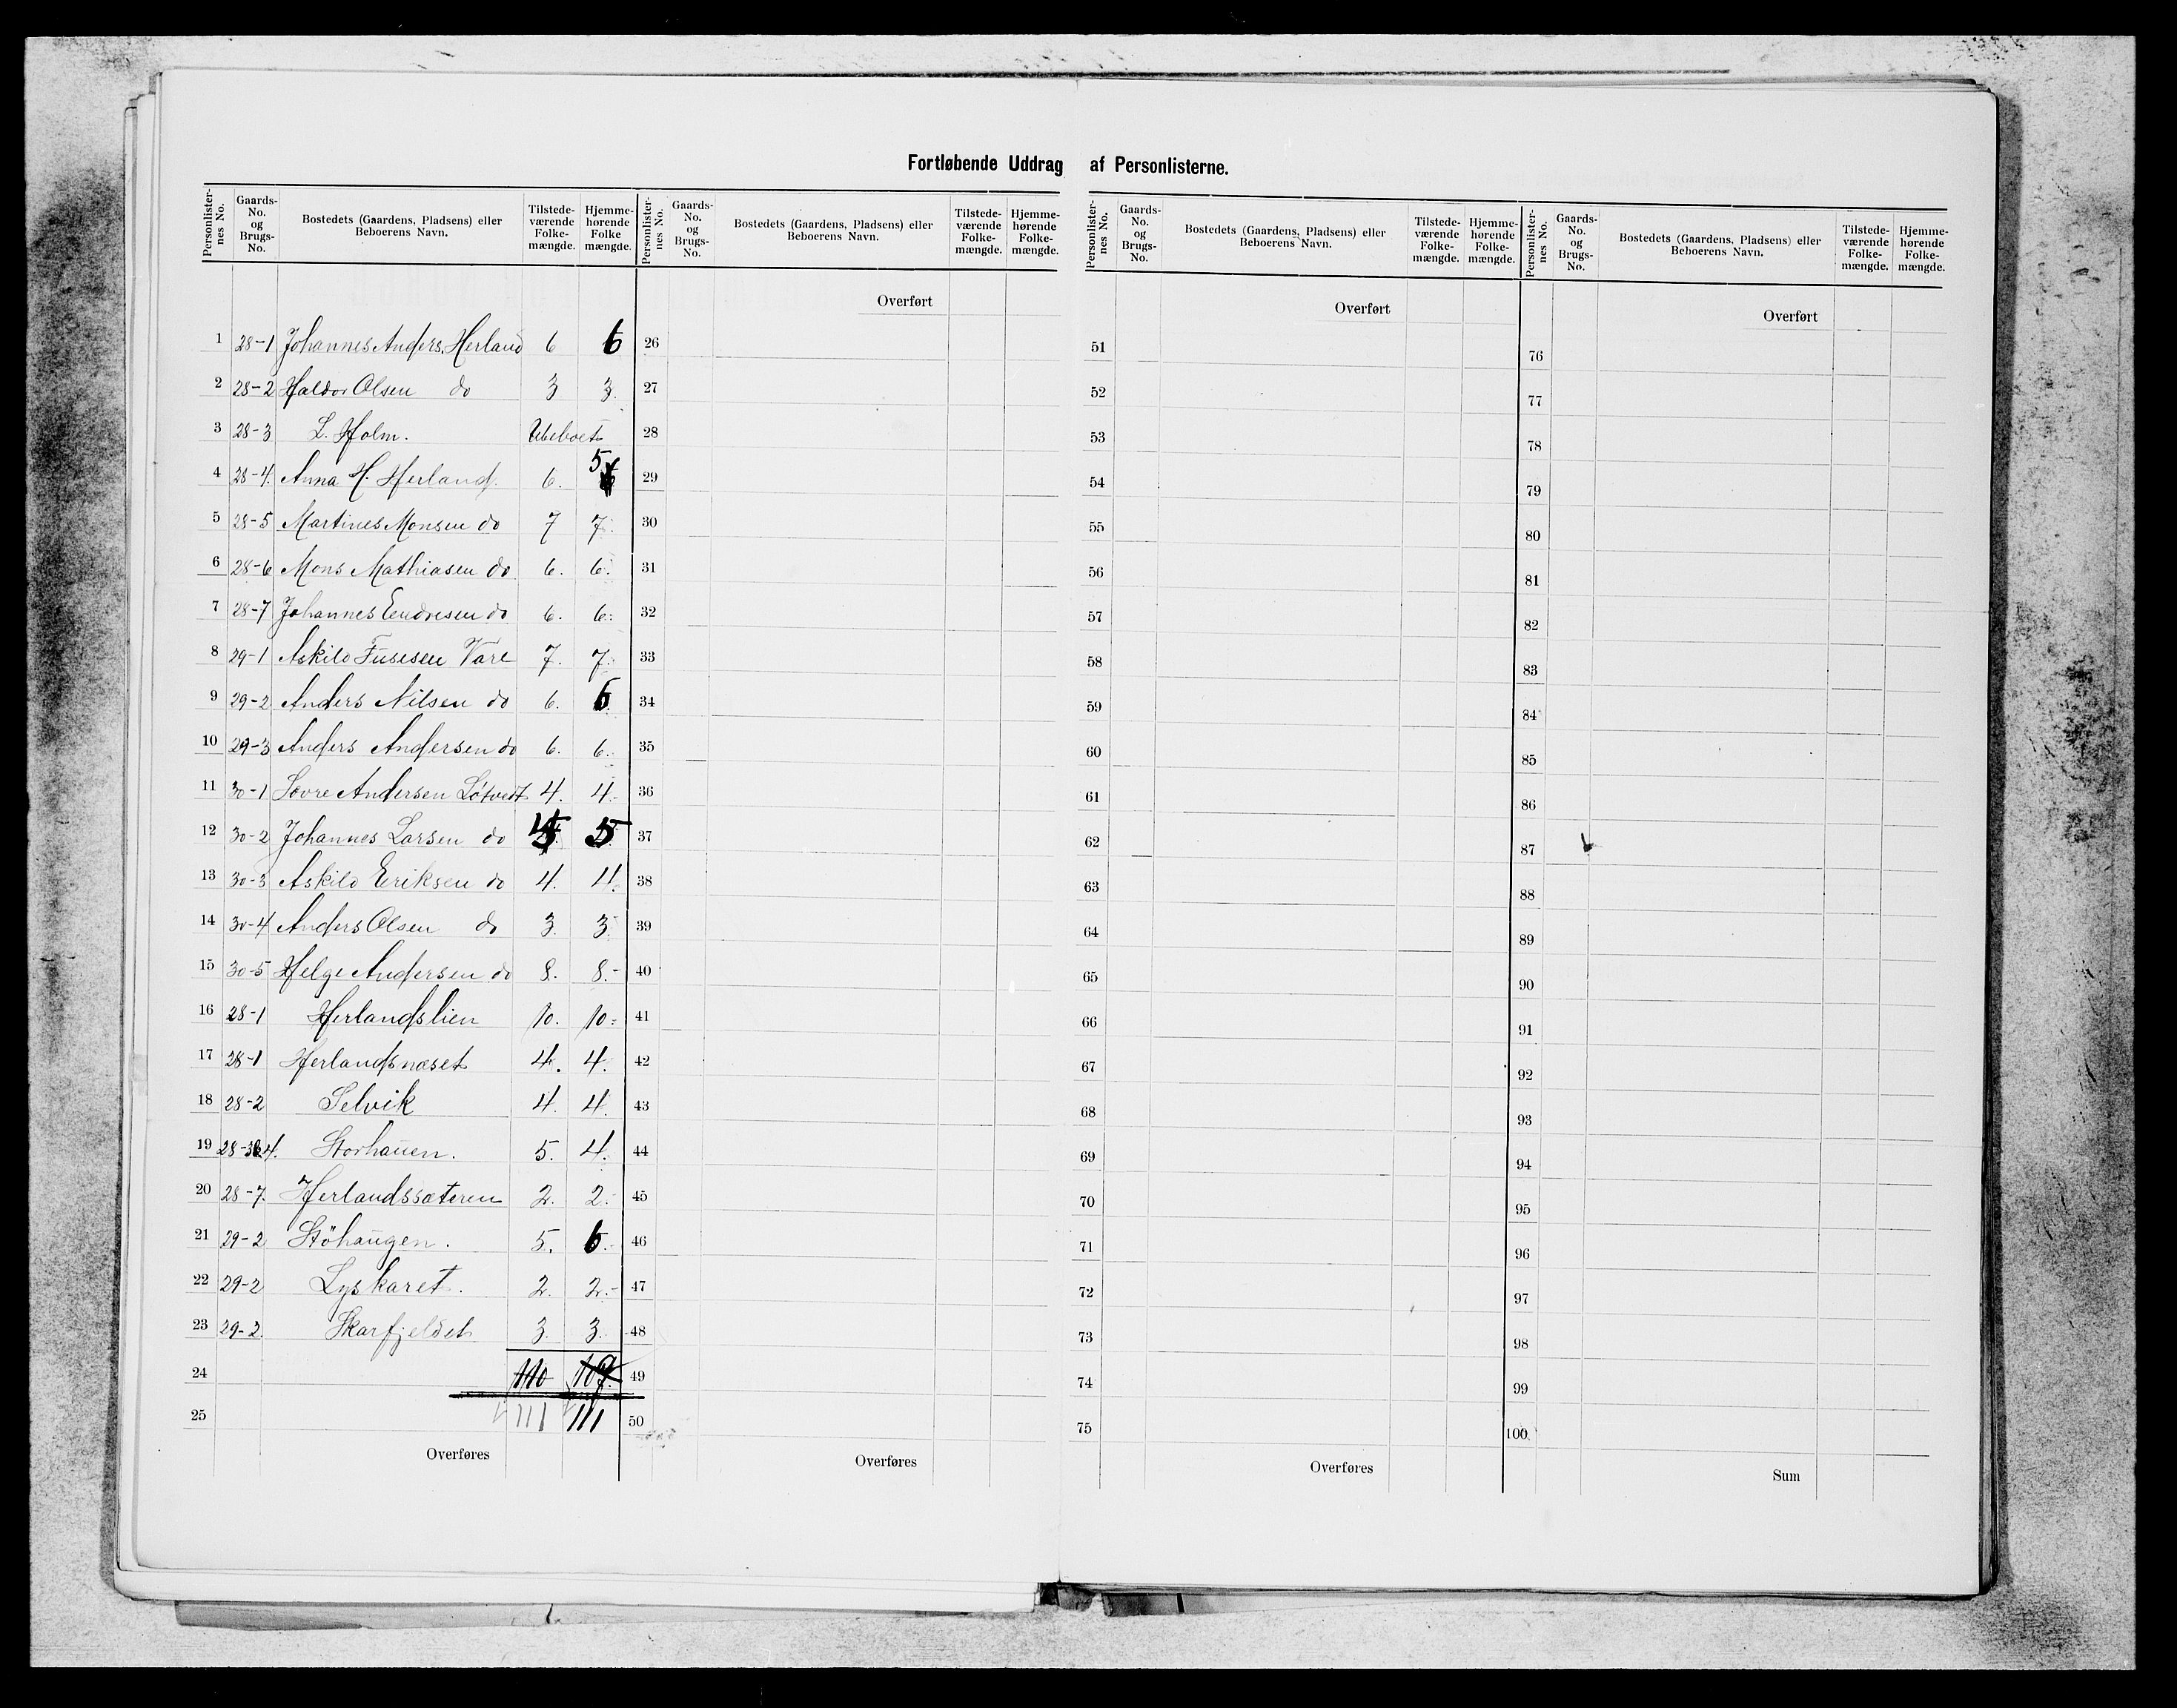 Fortløbende Uddrag af Personlisterne.
Personlister-nes No. Gaards-No. og Brugs-No. Bostedets (Gaardens, Pladsens) eller Beboerens Navn. Tilstede-værende Folke-mængde. Hjemme-hørende Folke mængde.
Personlister-nes No. Gaards-No. og Brugs-No. Bostedets (Gaardens, Pladsens) eller Beboerens Navn. Tilstede-værende Folke-mængde. Hjemme-hørende Folke-mængde.
Personlister-nes No. Gaards-No. og Brugs-No. Bostedets (Gaardens, Pladsens) eller Beboerens Navn. Tilstede-værende Folke-mængde. Hjemme-hørende Folke-mængde.
Personlister-nes No. Gaards-No. og Brugs-No. Bostedets (Gaardens, Pladsens) eller Beboerens Navn. Tilstede-værende Folke-mængde. Hjemme-hørende Folke-mængde.
Overført Overført Overført
1 28-1 Johannes Anders. Herland 6 6 26 51 76
2 28-2 Haldor Olsen do 3 3. 27 52 77
3 28-3 L. Holm. Ubeboet 28 53 78
4 28-4. Anna H. Herland. 6. 5 29 54 79
5 28-5 Martines Monsen do 7 7. 30 55 80
6 28-6 Mons Mathiasen do 6. 6. 31 56 81
7 28-7 Johannes Endresen do 6. 6. 32 57 82
8 29-1 Askild Fusesen Vare 7. 7. 33 58 83
9 29-2 Anders Nilsen do 6. 6. 34 59 84
10 29-3 Anders Andersen do 6. 6. 35 60 85
11 30-1 Sovre Andersen Løtvedt 4. 4. 36 61 86
12 30-2 Johannes Larsen do 5 37 62 87
13 30-3 Askild Eriksen do 4. 4. 38 63 88
14 30-4 Anders Olsen do 3. 3. 39 64 89
15 30-5 Helge Andersen do 8. 8. 40 65 90
16 28-1 Herlandslien 10. 10. 41 66 91
17 28-1 Herlandsnæset 4. 4. 42 67 92
18 28-2 Selvik 4. 4. 43 68 93
19 28-3&4. Storhauen. 5. 4. 44 69 94
20 28-7. Herlandssæteren 2. 2. 45 70 95
21 29-2 Stöhaugen. 5. 6. 46 71 96
22 29-2 Lyskaret. 2. 2. 47 72 97
23 29-2. Skarfjeldet 3. 3. 48 73 98
24 110 109. 49 74 99
25 111 111 50 75 100
Overføres Overføres Overføres Sum